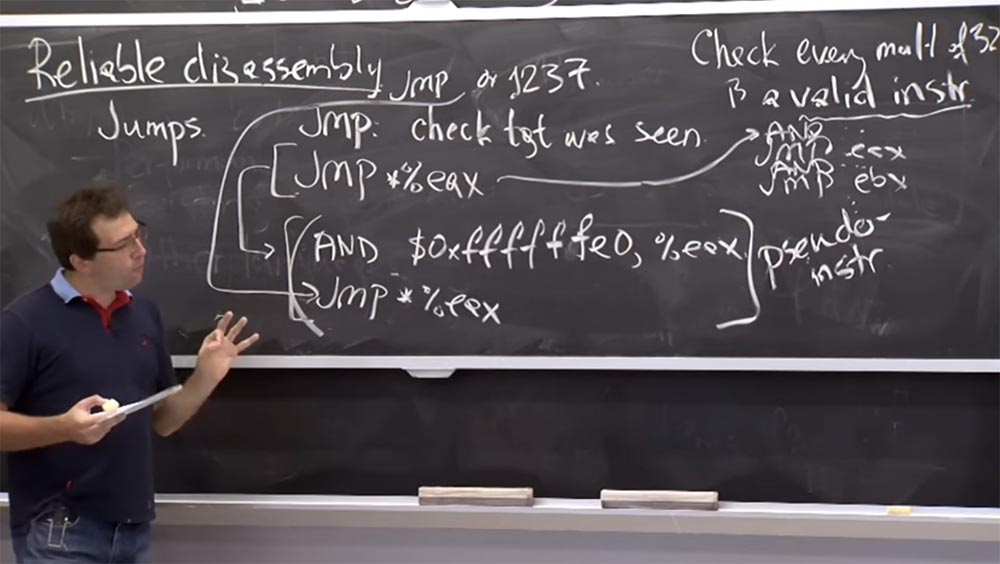 Reliable disassembly
JMP or 1237.
Check every mult of 32
B a valid instr
Jumps.
JMP: check tgt was seen.
JMP *%eax
AND
JMP eax
JMP ebx
AND $0xffffffe0, %eax
JMP *%eax
pseudo-
instr